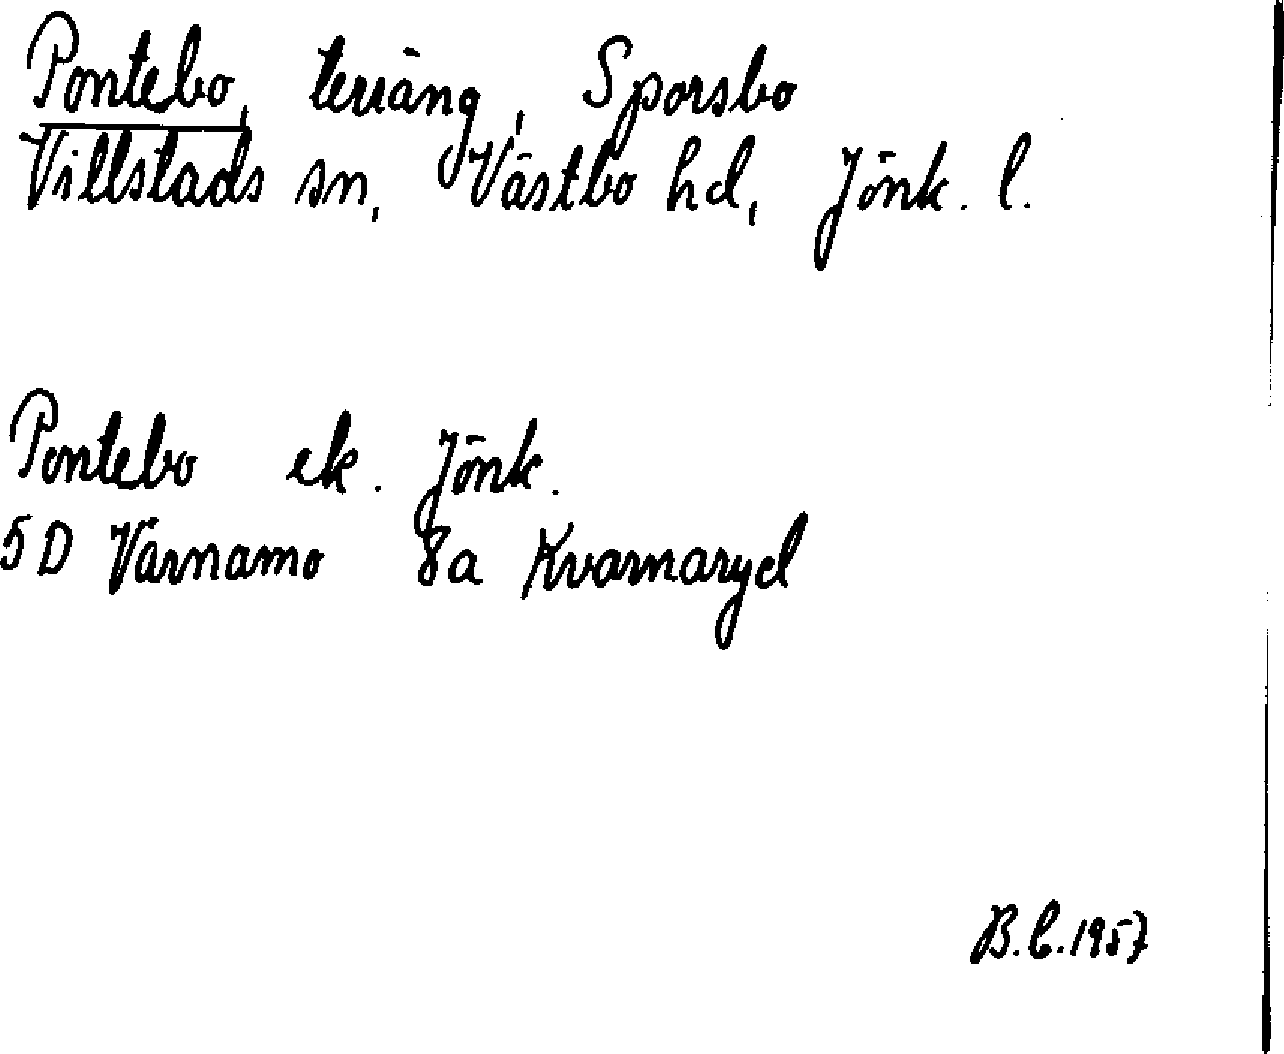 Pontebo, terräng, Sporsbo
Villstads sn, Västbo hd, Jönk. l.
Pontebo ek. Jönk.
5D Värnamo 8a Kvarnaryd
B.C. 1957